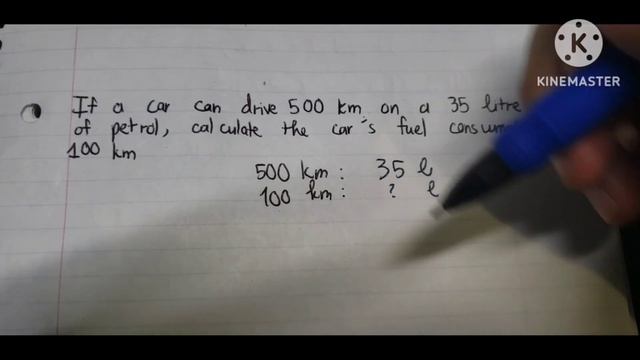 If a car can drive 500 km on a 35 litre
of petrol, calculate the car's fuel
100 km
500 km : 35 l
100 km : ? l
KINEMASTER